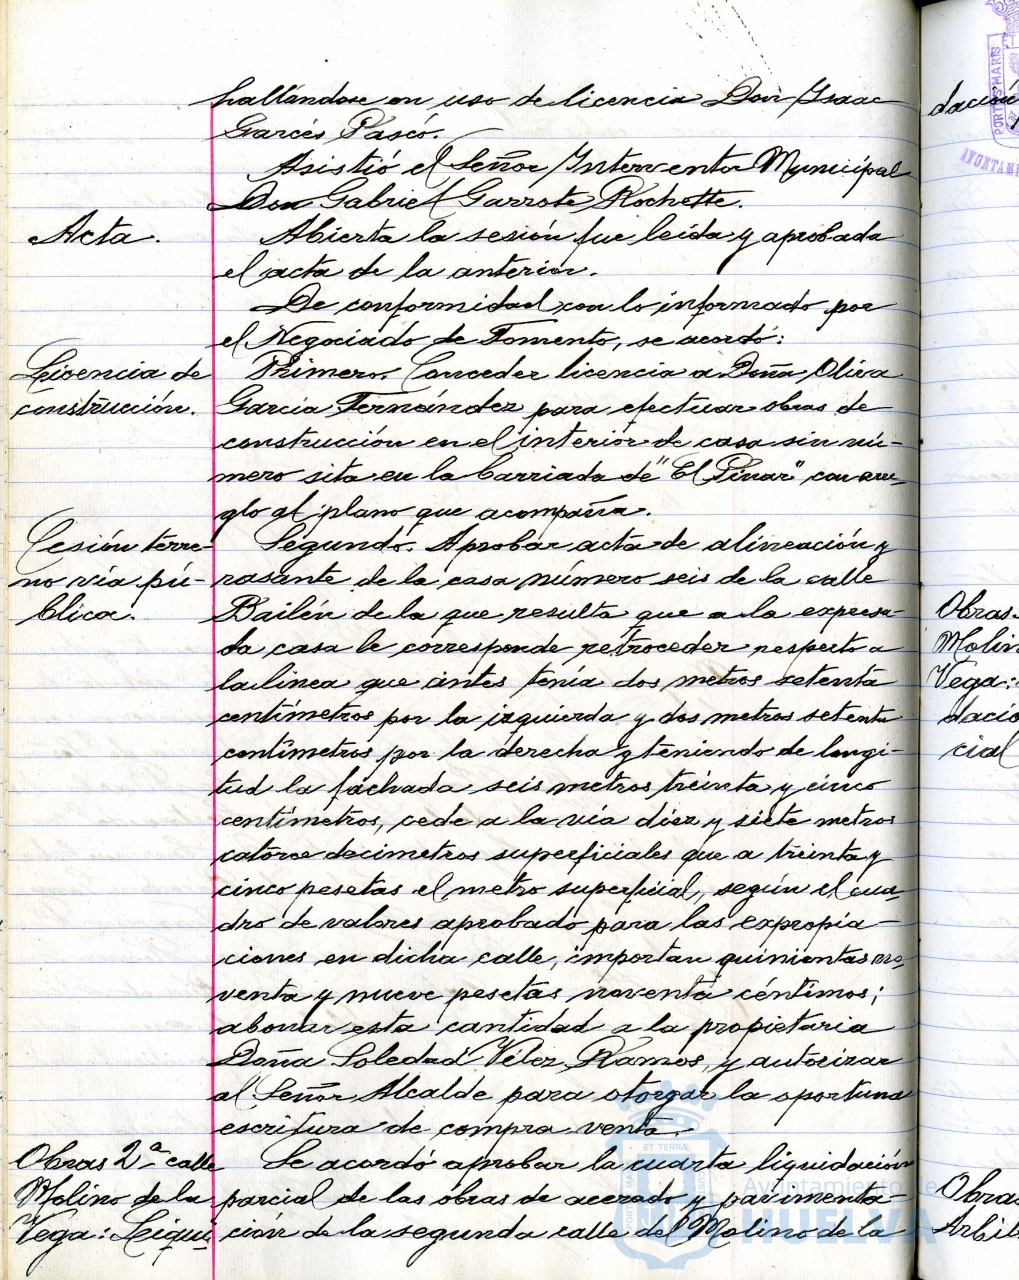 hallándose en uso de licencia Don Isaac
Garcés Pascó.
Asistió el Señor Interventor Municipal
Don Gabriel Garrote Rochette.
Acta.
Abierta la sesión fue leida y aprobada
el acta de la anterior.
De conformidad con lo informado por
el Negociado de Fomento, se acordó:
Licencia de
construcción.
Primero. Conceder licencia a Doña Oliva
García Fernández para efectuar obras de
construcción en el interior de casa sin nú-
mero sita en la barriada de "El Pinar" con arre-
glo al plano que acompaña.
Cesión terre-
no vía pú-
blica.
Segundo. Aprobar acta de alineación y
rasante de la casa número seis de la calle
Bailén de la que resulta que a la expresa-
da casa le corresponde retroceder respecto a
la linea que antes tenía dos metros setenta
centímetros por la izquierda y dos metros setenta
centímetros por la derecha y teniendo de longi-
tud la fachada seis metros treinta y cinco
centímetros, cede a la via diez y siete metros
catorce decimetros superficiales que a treinta y
cinco pesetas el metro superficial, según el cua-
dro de valores aprobado para las expropia-
ciones en dicha calle, importan quinientas no-
venta y nueve pesetas noventa céntimos;
abonar esta cantidad a la propietaria
Doña Soledad Velez Ramos, y autorizar
al Señor Alcalde para otorgar la oportuna
escritura de compra venta.
Obras 2ª calle
Molino de la
Vega: Liqui
Se acordó aprobar la cuarta liquidación
parcial de las obras de acerado y pavimenta-
ción de la segunda calle del Molino de la
dación
Obras
Molin
Vega:
dació
cial
Obras
Arbit
PORTUS MARIS
AYUNTAMI
ET TERRÆ
Ayuntamiento de
HUELVA